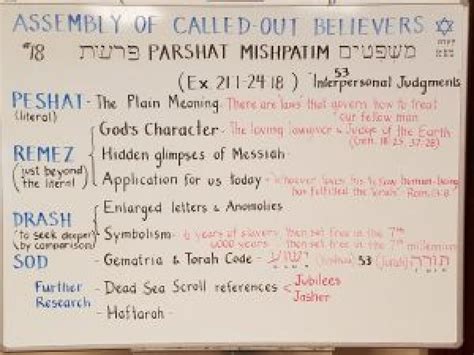 ASSEMBLY OF CALLED-OUT BELIEVERS
#18 פרעות PARSHAT MISHPATIM משפטים
(Ex. 21:1-24:18) 53 Interpersonal Judgments
PESHAT - The Plain Meaning There are laws that govern how to treat
(literal) our fellow man
God's Character - The loving lawgiver & Judge of the Earth
(Gen. 18:25
REMEZ Hidden glimpses of Messiah
(just beyond
the literal) Application for us today - "Whoever loves his fellow human being
has fulfilled the Torah" Rom. 13:8
Enlarged letters & Anomolies
DRASH
"to seek deeper Symbolism - 6 years of slavery then set free in the 7th
by comparison) 6000 years then set free in the 7th millenium
SOD - Gematria & Torah Code - ישוע 53 תורה
Further - Dead Sea Scroll references < Jubilees
Research Jasher
- Haftarah -